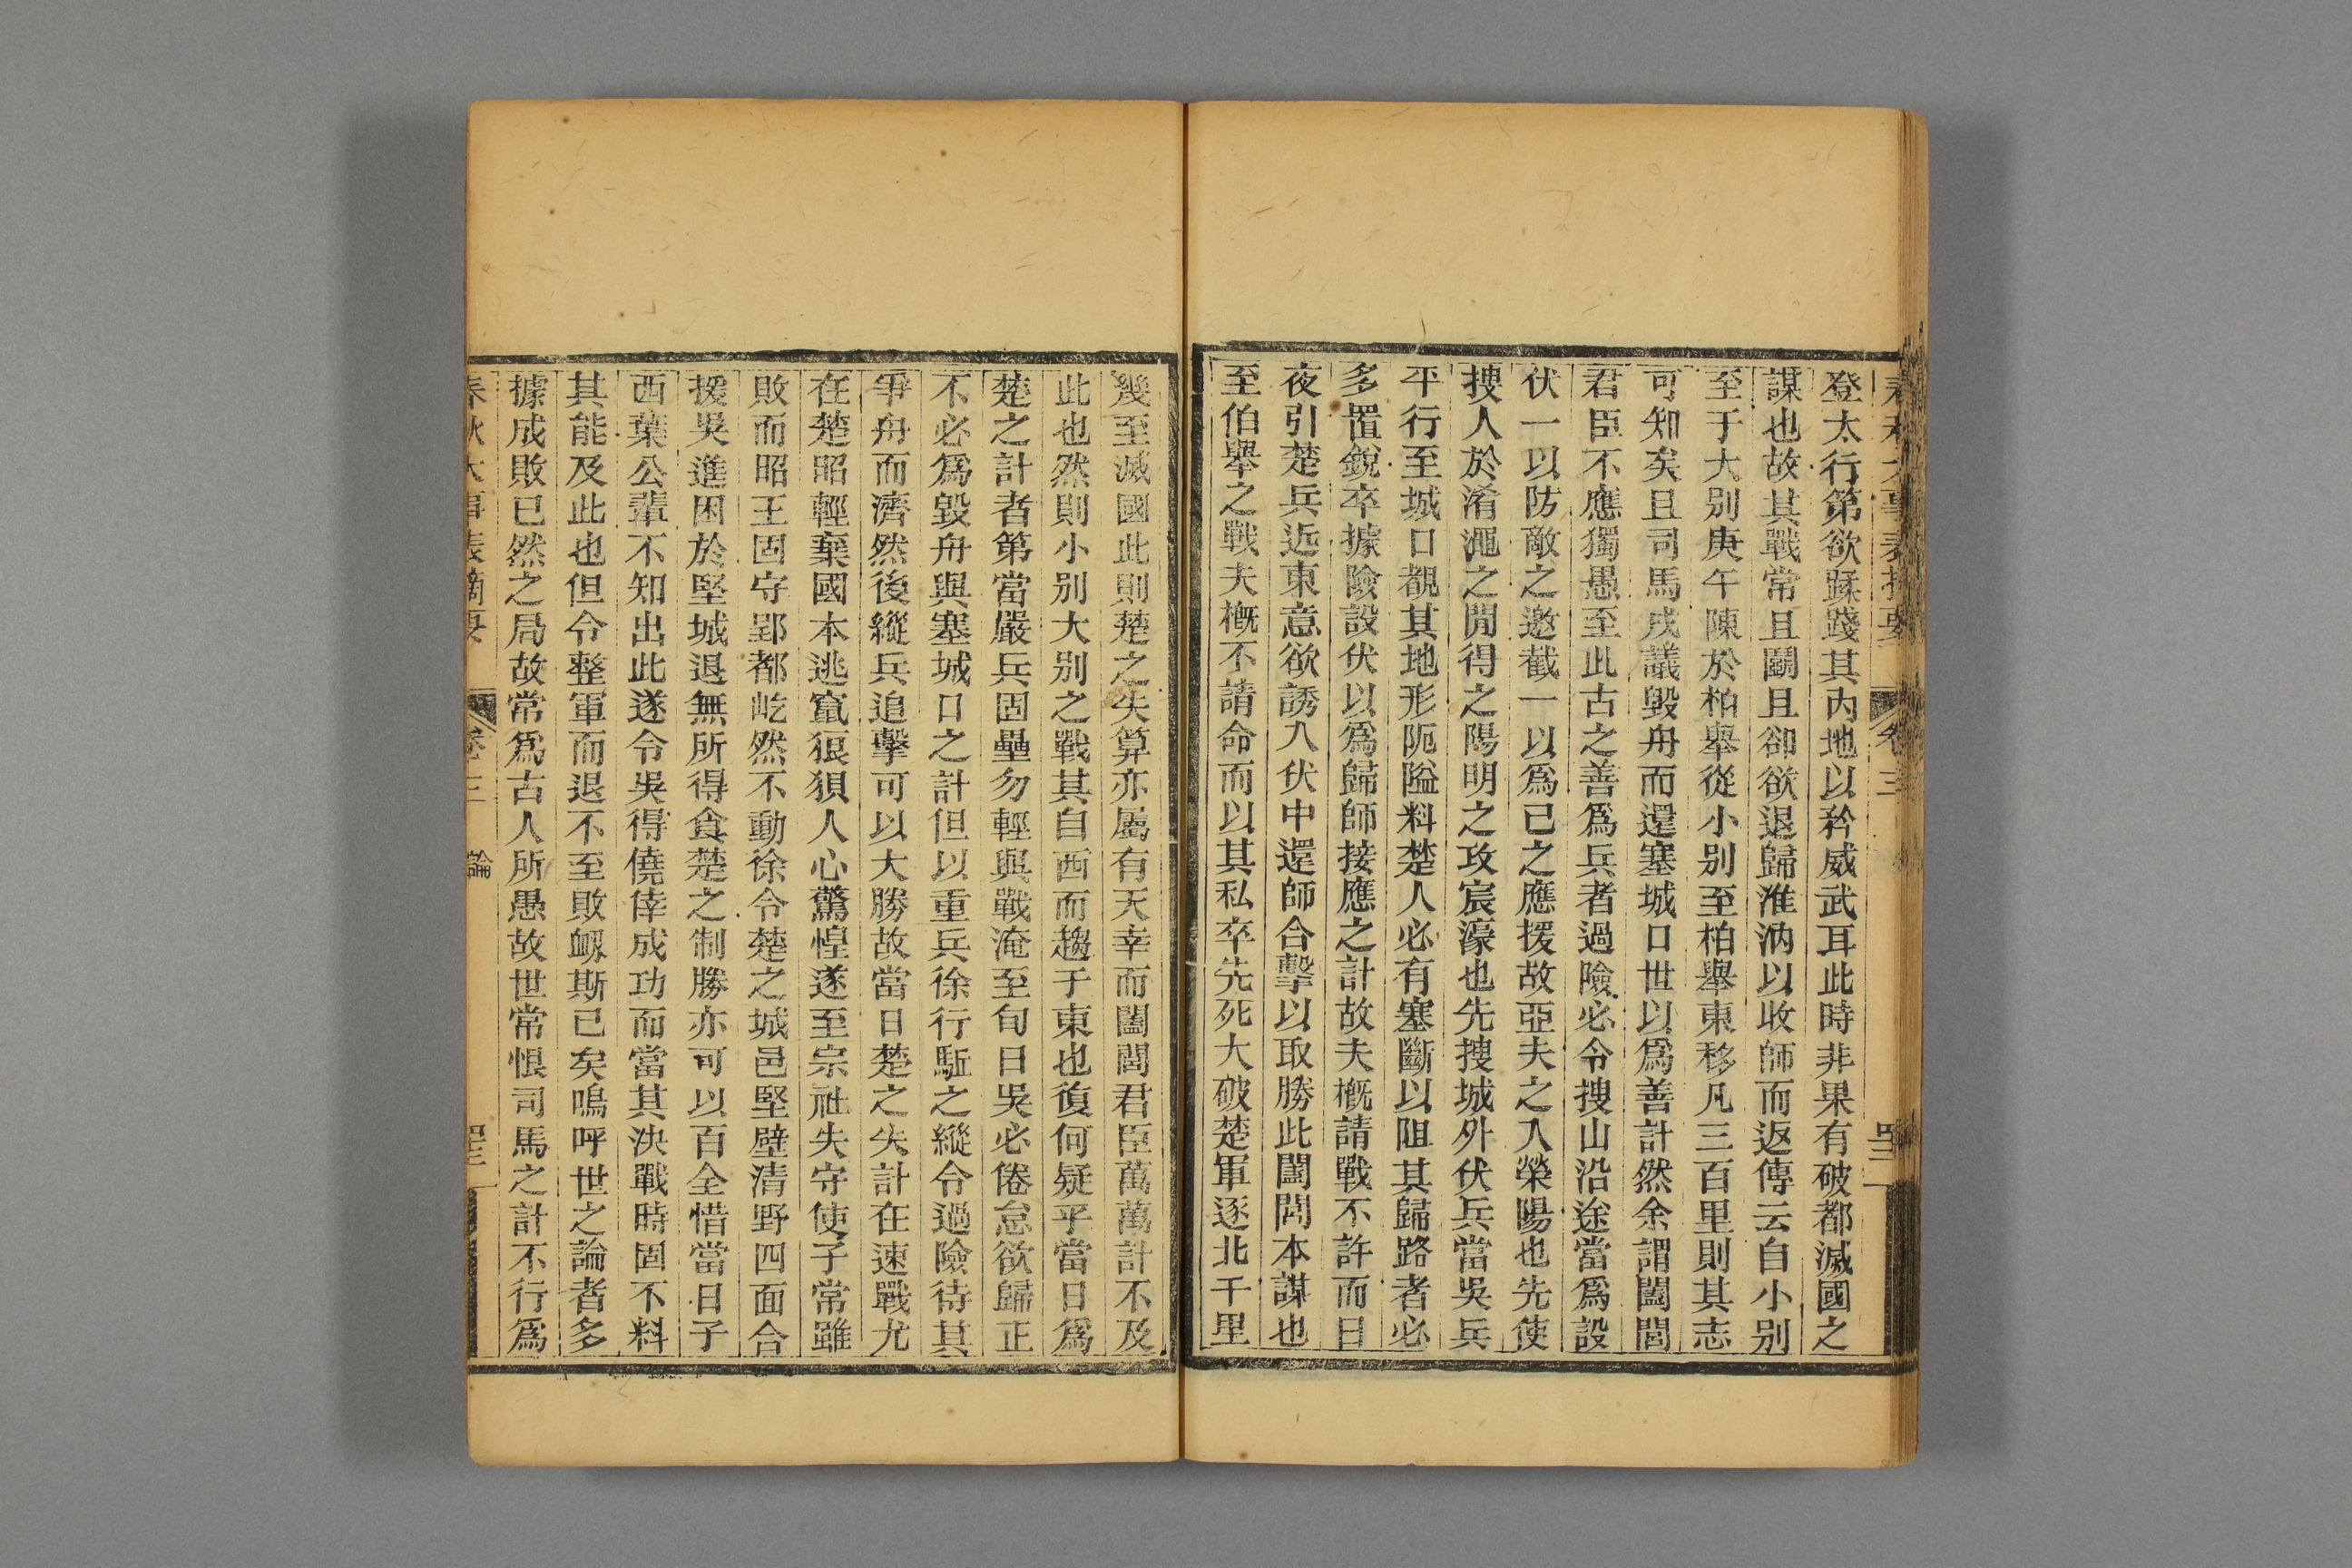 春秋大事表摘要 卷三
登太行第欲蹂踐其內地以矜威武耳此時非果有破都滅國之
謀也故其戰常且鬭且卻欲退歸淮汭以收師而返傳云自小别
至于大别庚午陳於柏舉從小别至柏舉東移凡三百里則其志
可知矣且司馬戌議毀舟而還塞城口世以爲善計然余謂闔閭
君臣不應獨愚至此古之善爲兵者過險必令搜山沿途當爲設
伏一以防敵之邀截一以爲已之應援故亞夫之入滎陽也先使
搜人於淆澠之閒得之陽明之攻宸濠也先搜城外伏兵當吳兵
平行至城口覩其地形阨隘料楚人必有塞斷以阻其歸路者必
多置銳卒據險設伏以爲歸師接應之計故夫槪請戰不許而日
夜引楚兵近東意欲誘入伏中還師合擊以取勝此闔閭本謀也
至伯舉之戰夫槪不請命而以其私卒先死大破楚軍逐北千里
幾至滅國此則楚之失算亦屬有天幸而闔閭君臣萬萬計不及
此也然則小别大别之戰其自西而趨于東也復何疑乎當日爲
楚之計者第當嚴兵固壘勿輕與戰淹至旬日吳必倦怠欲歸正
不必爲毀舟與塞城口之計但以重兵徐行駈之縱令過險待其
爭舟而濟然後縱兵追擊可以大勝故當日楚之失計在速戰尤
在楚昭輕棄國本逃竄狼狽人心驚惶遂至宗社失守使子常雖
敗而昭王固守郢都屹然不動徐令楚之城邑堅壁清野四面合
援吳進困於堅城退無所得食楚之制勝亦可以百全惜當日子
西葉公輩不知出此遂令吳得僥倖成功而當其決戰時固不料
其能及此也但令整軍而退不至敗衂斯已矣嗚呼世之論者多
據成敗已然之局故常爲古人所愚故世常恨司馬之計不行爲
春秋大事表摘要 卷三 論